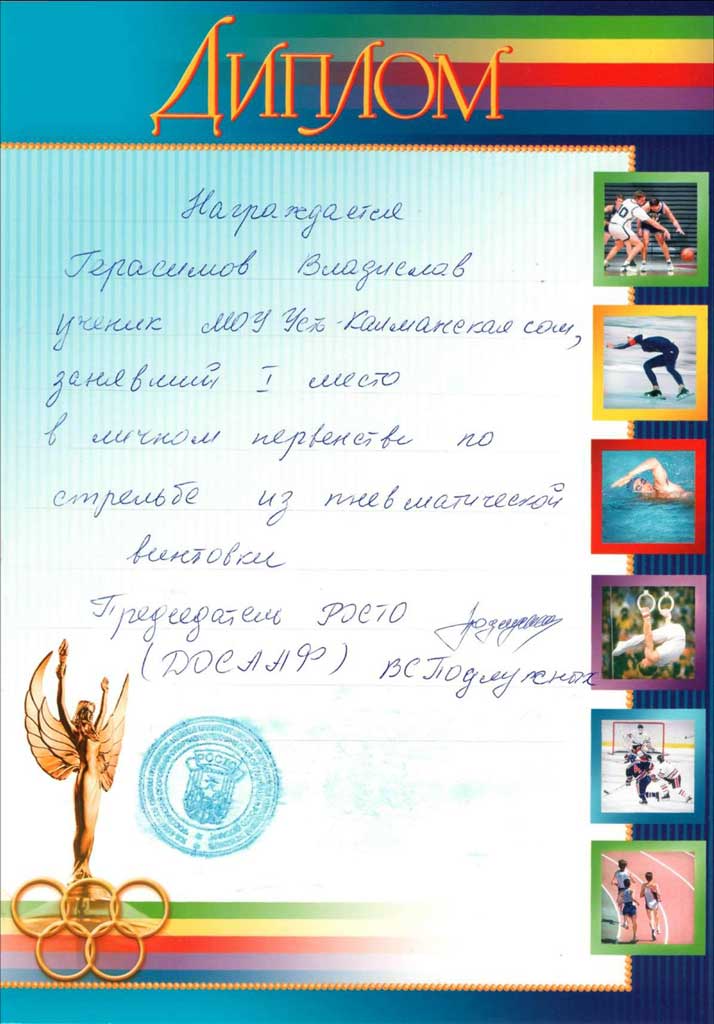 Диплом
Награждается
Герасимов Владислав
ученик МОУ Усть-Калманская сош,
занявший I место
в личном первенстве по
стрельбе из пневматической
винтовки
Председатель РОСТО
(ДОСААФ) ВС Подлужных
РОСТО
10